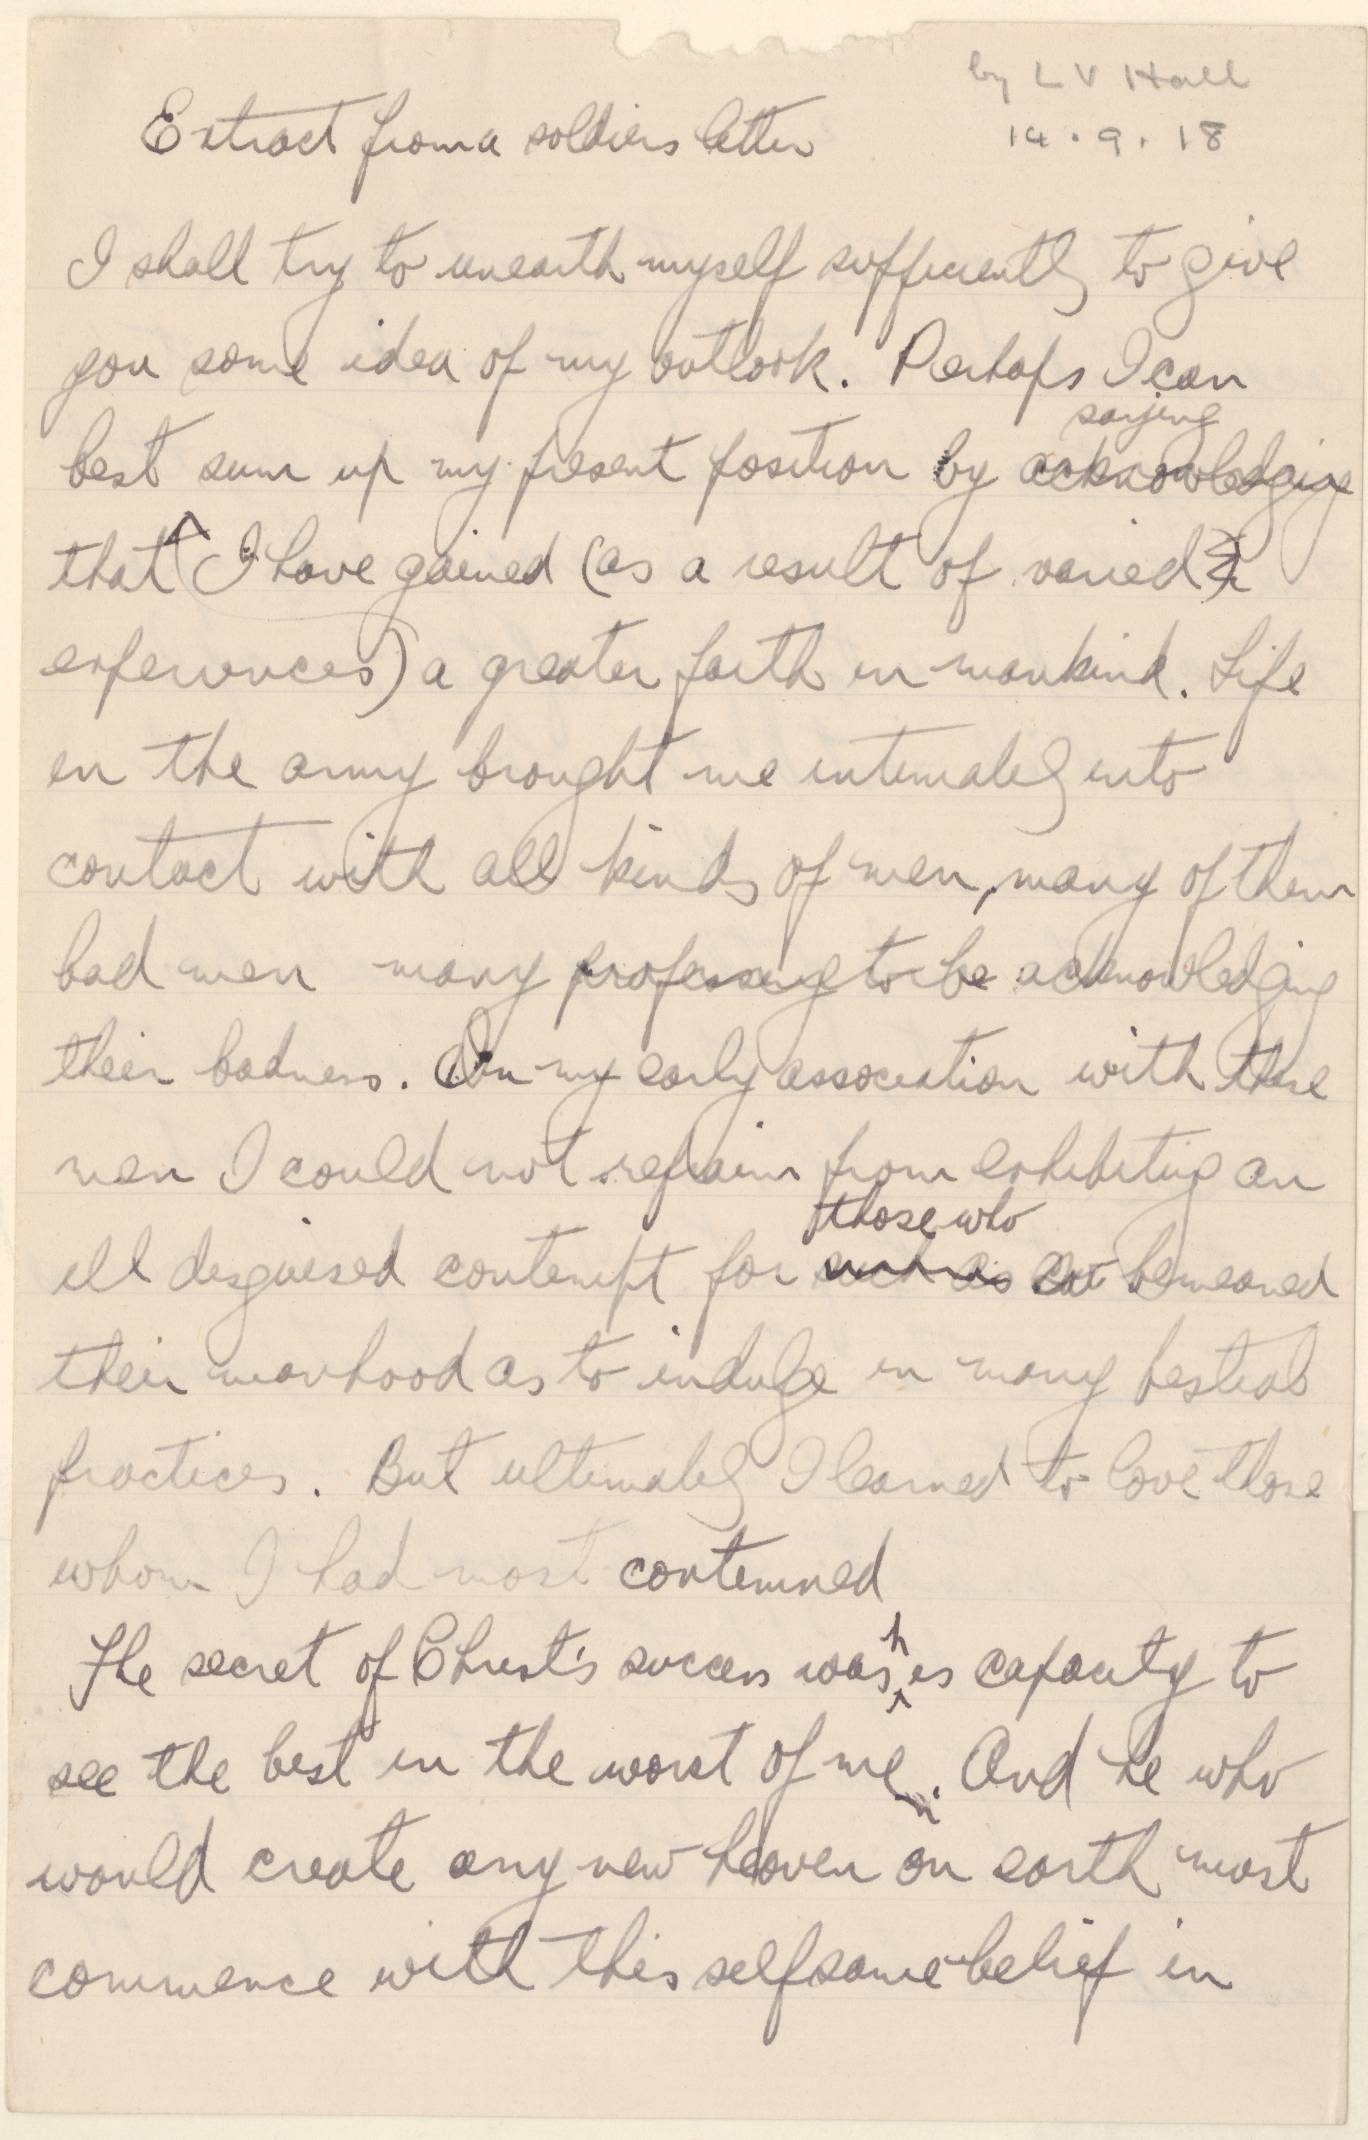 by L V Hall
14.9.18
Extract from a soldiers letter
I shall try to unearth myself sufficiently to give
you some idea of my outlook. Perhaps I can
saying
best sum up my present position by acknowledging
that I have gained (as a result of varied
experiences) a greater faith in mankind. Life
in the army brought me intimately into
contact with all kinds of men, many of them
bad men many professing to be acknowledging
their badness. In my early association with these
men I could not refrain from exhibiting an
those who
ill disguised contempt for such as so bemeaned
their manhood as to indulge in many bestial
practices. But ultimately I learned to love those
whom I had most contemned
The secret of Christ's success was his capacity to
see the best in the worst of men. And he who
would create any new heaven on earth must
commence with this selfsame belief in